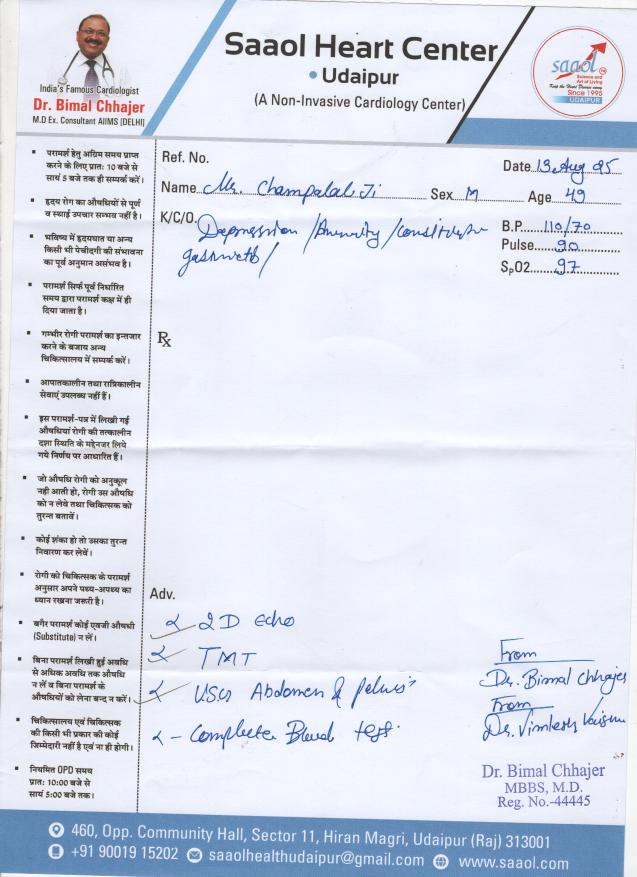 Saaol Heart Center
• Udaipur
(A Non-Invasive Cardiology Center)
India's Famous Cardiologist
Dr. Bimal Chhajer
M.D Ex. Consultant AIIMS (DELHI)
saaol
Science and
Art of Living
Keep the Heart Disease away
Since 1995
UDAIPUR
परामर्श हेतु अग्रिम समय प्राप्त
करने के लिए प्रातः 10 बजे से
सायं 5 बजे तक ही सम्पर्क करें।
हृदय रोग का औषधियों से पूर्ण
व स्थाई उपचार सम्भव नहीं है।
भविष्य में हृदयघात या अन्य
किसी भी पेचीदगी की संभावना
का पूर्व अनुमान असंभव है।
परामर्श सिर्फ पूर्व निर्धारित
समय द्वारा परामर्श कक्ष में ही
दिया जाता है।
गम्भीर रोगी परामर्श का इन्तजार
करने के बजाय अन्य
चिकित्सालय में सम्पर्क करें।
आपातकालीन तथा रात्रिकालीन
सेवाएं उपलब्ध नहीं हैं।
इस परामर्श-पत्र में लिखी गई
औषधियां रोगी की तत्कालीन
दशा स्थिति के मद्देनजर लिये
गये निर्णय पर आधारित हैं।
जो औषधि रोगी को अनुकूल
नही आती हो, रोगी उस औषधि
को न लेवे तथा चिकित्सक को
तुरन्त बतावें।
कोई शंका हो तो उसका तुरन्त
निवारण कर लेवें।
रोगी को चिकित्सक के परामर्श
अनुसार अपने पथ्य-अपथ्य का
ध्यान रखना जरूरी है।
बगैर परामर्श कोई एवजी औषधी
(Substitute) न लें।
बिना परामर्श लिखी हुई अवधि
से अधिक अवधि तक औषधि
न लें व बिना परामर्श के
औषधियों को लेना बन्द न करें।
चिकित्सालय एवं चिकित्सक
की किसी भी प्रकार की कोई
जिम्मेदारी नहीं है एवं ना ही होगी।
नियमित OPD समय
प्रातः 10:00 बजे से
सायं 5:00 बजे तक।
Ref. No.
Date 13 Aug 25
Name Mr. Champalal Ji Sex M Age 49
K/C/O. Depression / Anxiety /
B.P. 110/70
Pulse 90
SpO2 97
Rx
Adv.
2D echo
TMT
USG Abdomen & pelvis
- Complete Blood test.
From
Dr. Bimal Chhajer
From
Dr.
Dr. Bimal Chhajer
MBBS, M.D.
Reg. No.-44445
460, Opp. Community Hall, Sector 11, Hiran Magri, Udaipur (Raj) 313001
+91 90019 15202 saaolhealthudaipur@gmail.com www.saaol.com